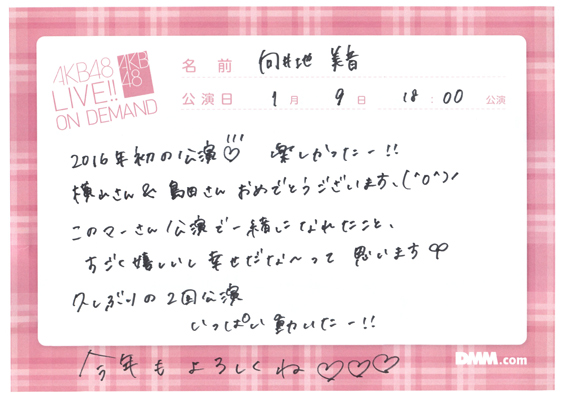 AKB48
LIVE!!
ON DEMAND
AKB
48
名前 向井地 美音
公演日 1月 9日 18:00 公演
2016年初の公演♡!!! 楽しかったー!!
横山さん& 島田さん おめでとうございます、(^o^)ノ
このマーさん公演で一緒になれたこと、
すごく嬉しいし幸せだな〜って 思います
久しぶりの2回公演
いっぱい動いたー!!
今年もよろしくね♡♡♡
DMM.com